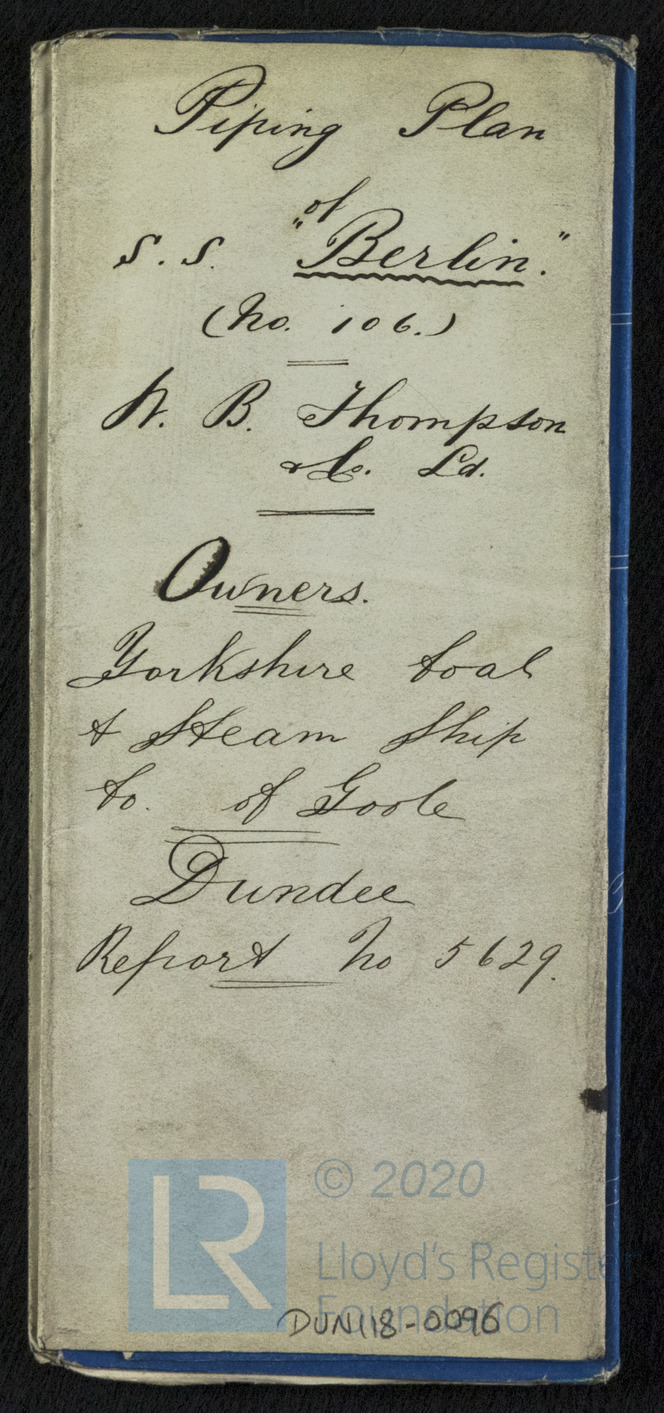 Piping Plan
of
S. S. "Berlin."
(No. 106.)
W. B. Thompson
& Co. Ld.
Owners.
Yorkshire Coal
& Steam Ship
Co. of Goole
Dundee
Report No 5629.
LR
© 2020
Lloyd's Register
Foundation
DUN118-0096